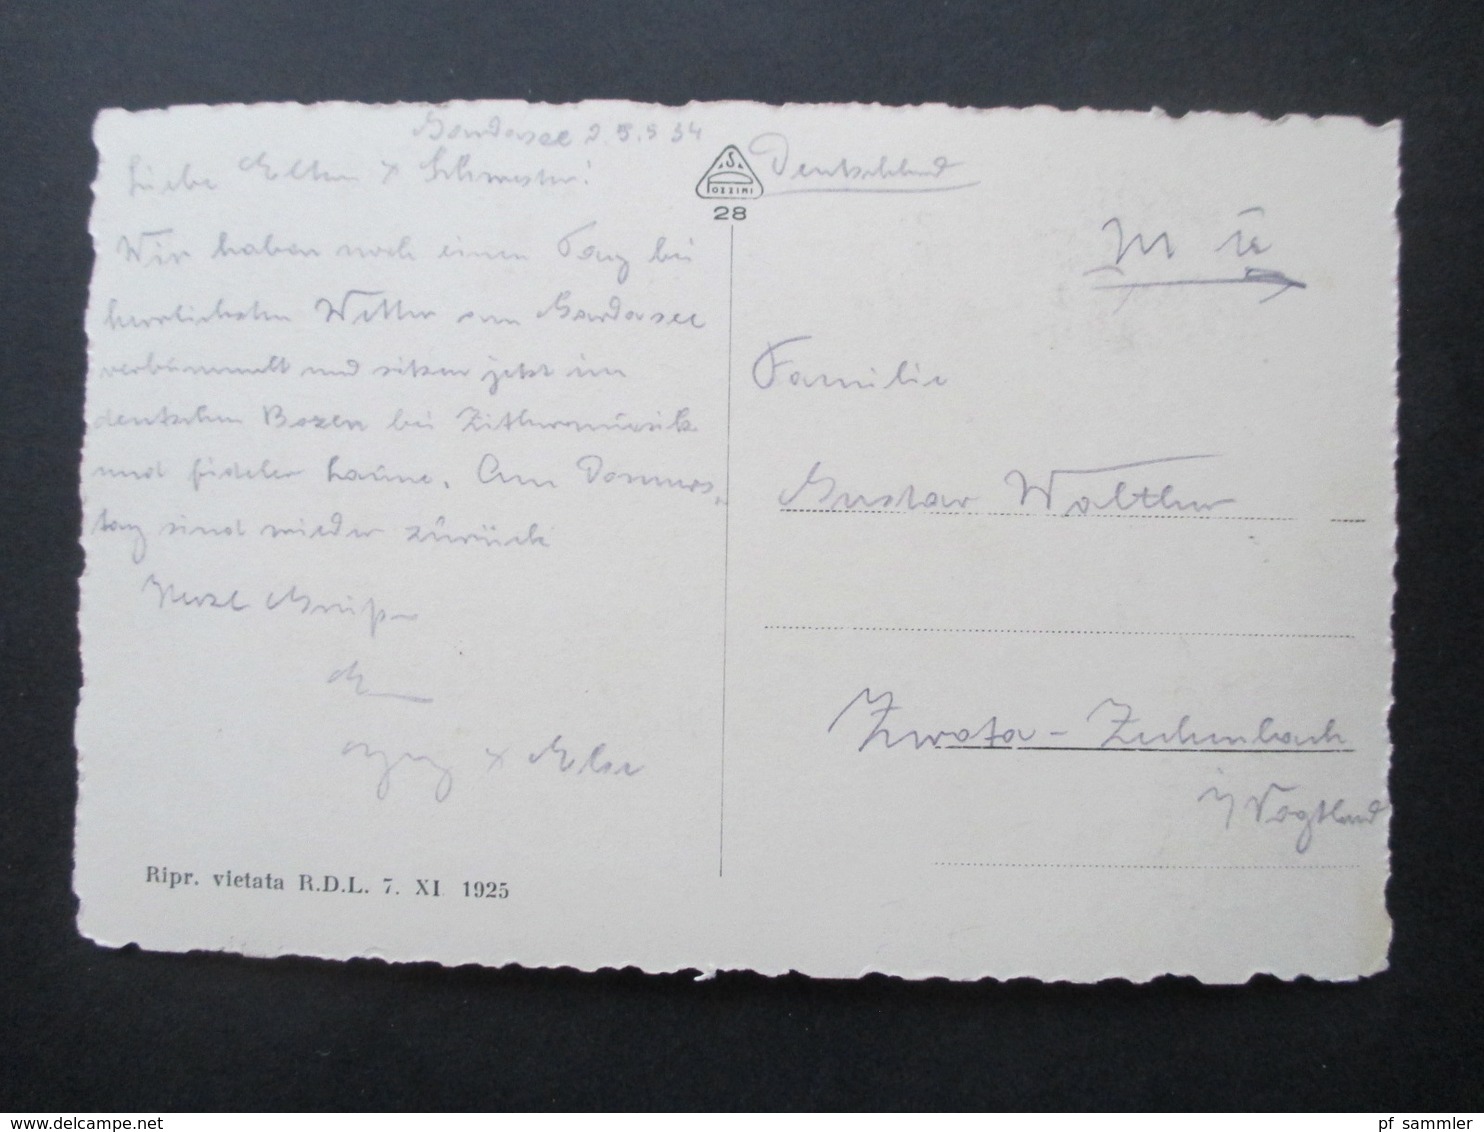 Gardasee 2 5. 5 34
Liebe Eltern + Schwester!
Wir haben noch einen Tag bei
herrlichsten Wetter am Gardasee
verbummelt und sitzen jetzt im
deutschen Bozen bei Zithermusik
und fideler Laune. Am Donners,
tag sind wieder zurück
Herzl Grüße
+ Else
Ripr. vietata R.D.L. 7. XI 1925
S
POZZINI
28
Deutschland
Familie
Gustav Walther
Zwota - Zechenbach
i/ Vogtland
delcampe.net
pf_sammler